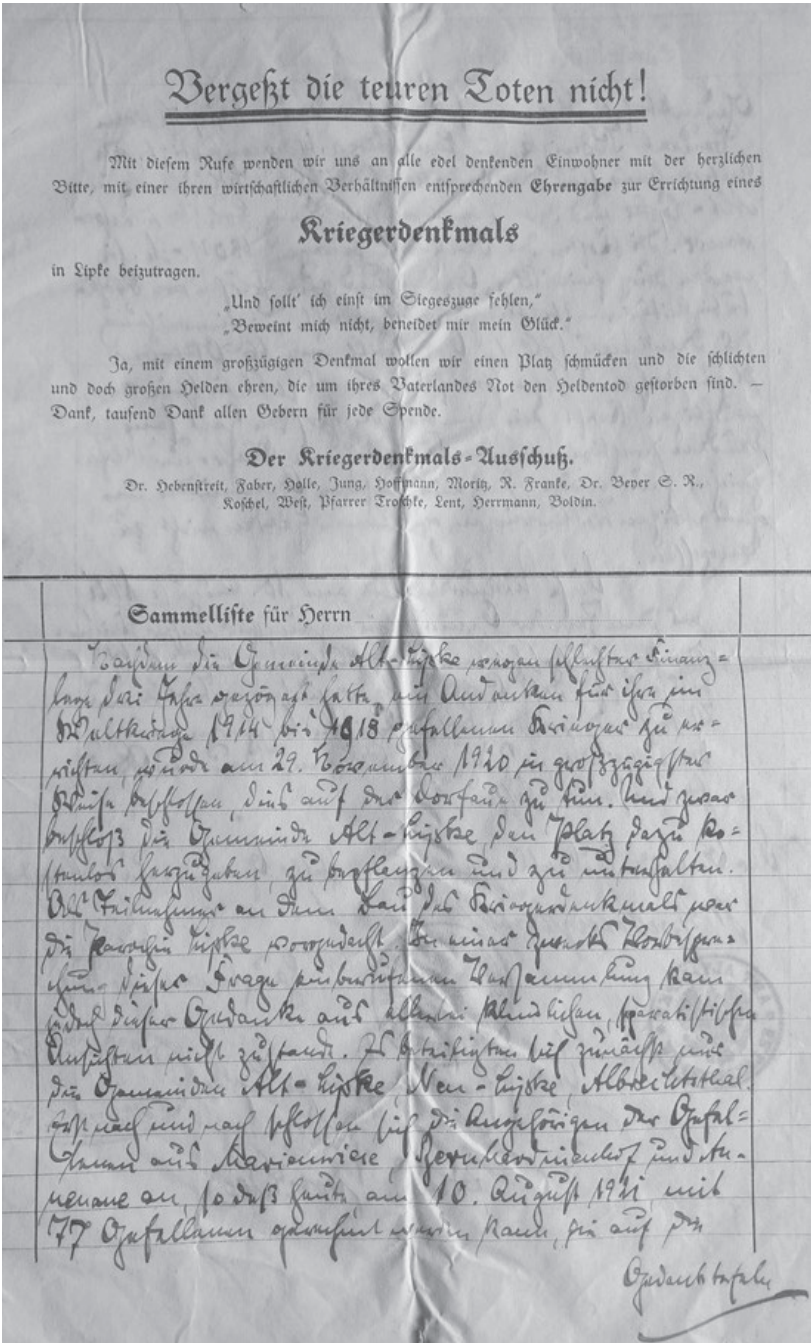 Vergeßt die teuren Toten nicht!
Mit diesem Rufe wenden wir uns an alle edel denkenden Einwohner mit der herzlichen
Bitte, mit einer ihren wirtschaftlichen Verhältnissen entsprechenden Ehrengabe zur Errichtung eines
Kriegerdenkmals
in Lipke beizutragen.
„Und sollt' ich einst im Siegeszuge fehlen,"
„Beweint mich nicht, beneidet mir mein Glück."
Ja, mit einem großzügigen Denkmal wollen wir einen Platz schmücken und die schlichten
und doch großen Helden ehren, die um ihres Vaterlandes Not den Heldentod gestorben sind. —
Dank, tausend Dank allen Gebern für jede Spende.
Der Kriegerdenkmals-Ausschuß.
Dr. Hebenstreit, Faber, Halle, Jung, Hoffmann, Moritz, R. Franke, Dr. Beyer S. R.,
Koschel, West, Pfarrer Troschke, Lent, Herrmann, Boldin.
Sammelliste für Herrn
Nachdem die Gemeinde Alt-Lipke wegen schlechter Finanz-
lage drei Jahre gezögert hatte, ein Andenken für ihre im
Weltkriege 1914 bis 1918 gefallenen Krieger zu er-
richten, wurde am 29. November 1920 in großzügigster
Weise beschlossen, dies auf der Dorfaue zu tun. Und zwar
beschloß die Gemeinde Alt-Lipke, den Platz dazu ko-
stenlos herzugeben, zu bepflanzen und zu unterhalten.
Als Teilnehmer an dem Bau des Kriegerdenkmals war
die Parochie Lipke vorgedacht. In einer zwecks Vorbespre-
chung dieser Frage einberufenen Versammlung kam
jedoch dieser Gedanke aus allerlei kleinlichen, sparatistischen
Ansichten nicht zustande. Es beteiligten sich zunächst nur
die Gemeinden Alt-Lipke, Neu-Lipke, Albrechtsthal.
Erst nach und nach schlossen sich die Angehörigen der Gefal-
lenen aus Marienwiese, Bernhardinenhof und An-
nenaue an, so daß heute, am 10. August 1921 mit
77 Gefallenen gerechnet werden kann, die auf die
Gedenktafeln